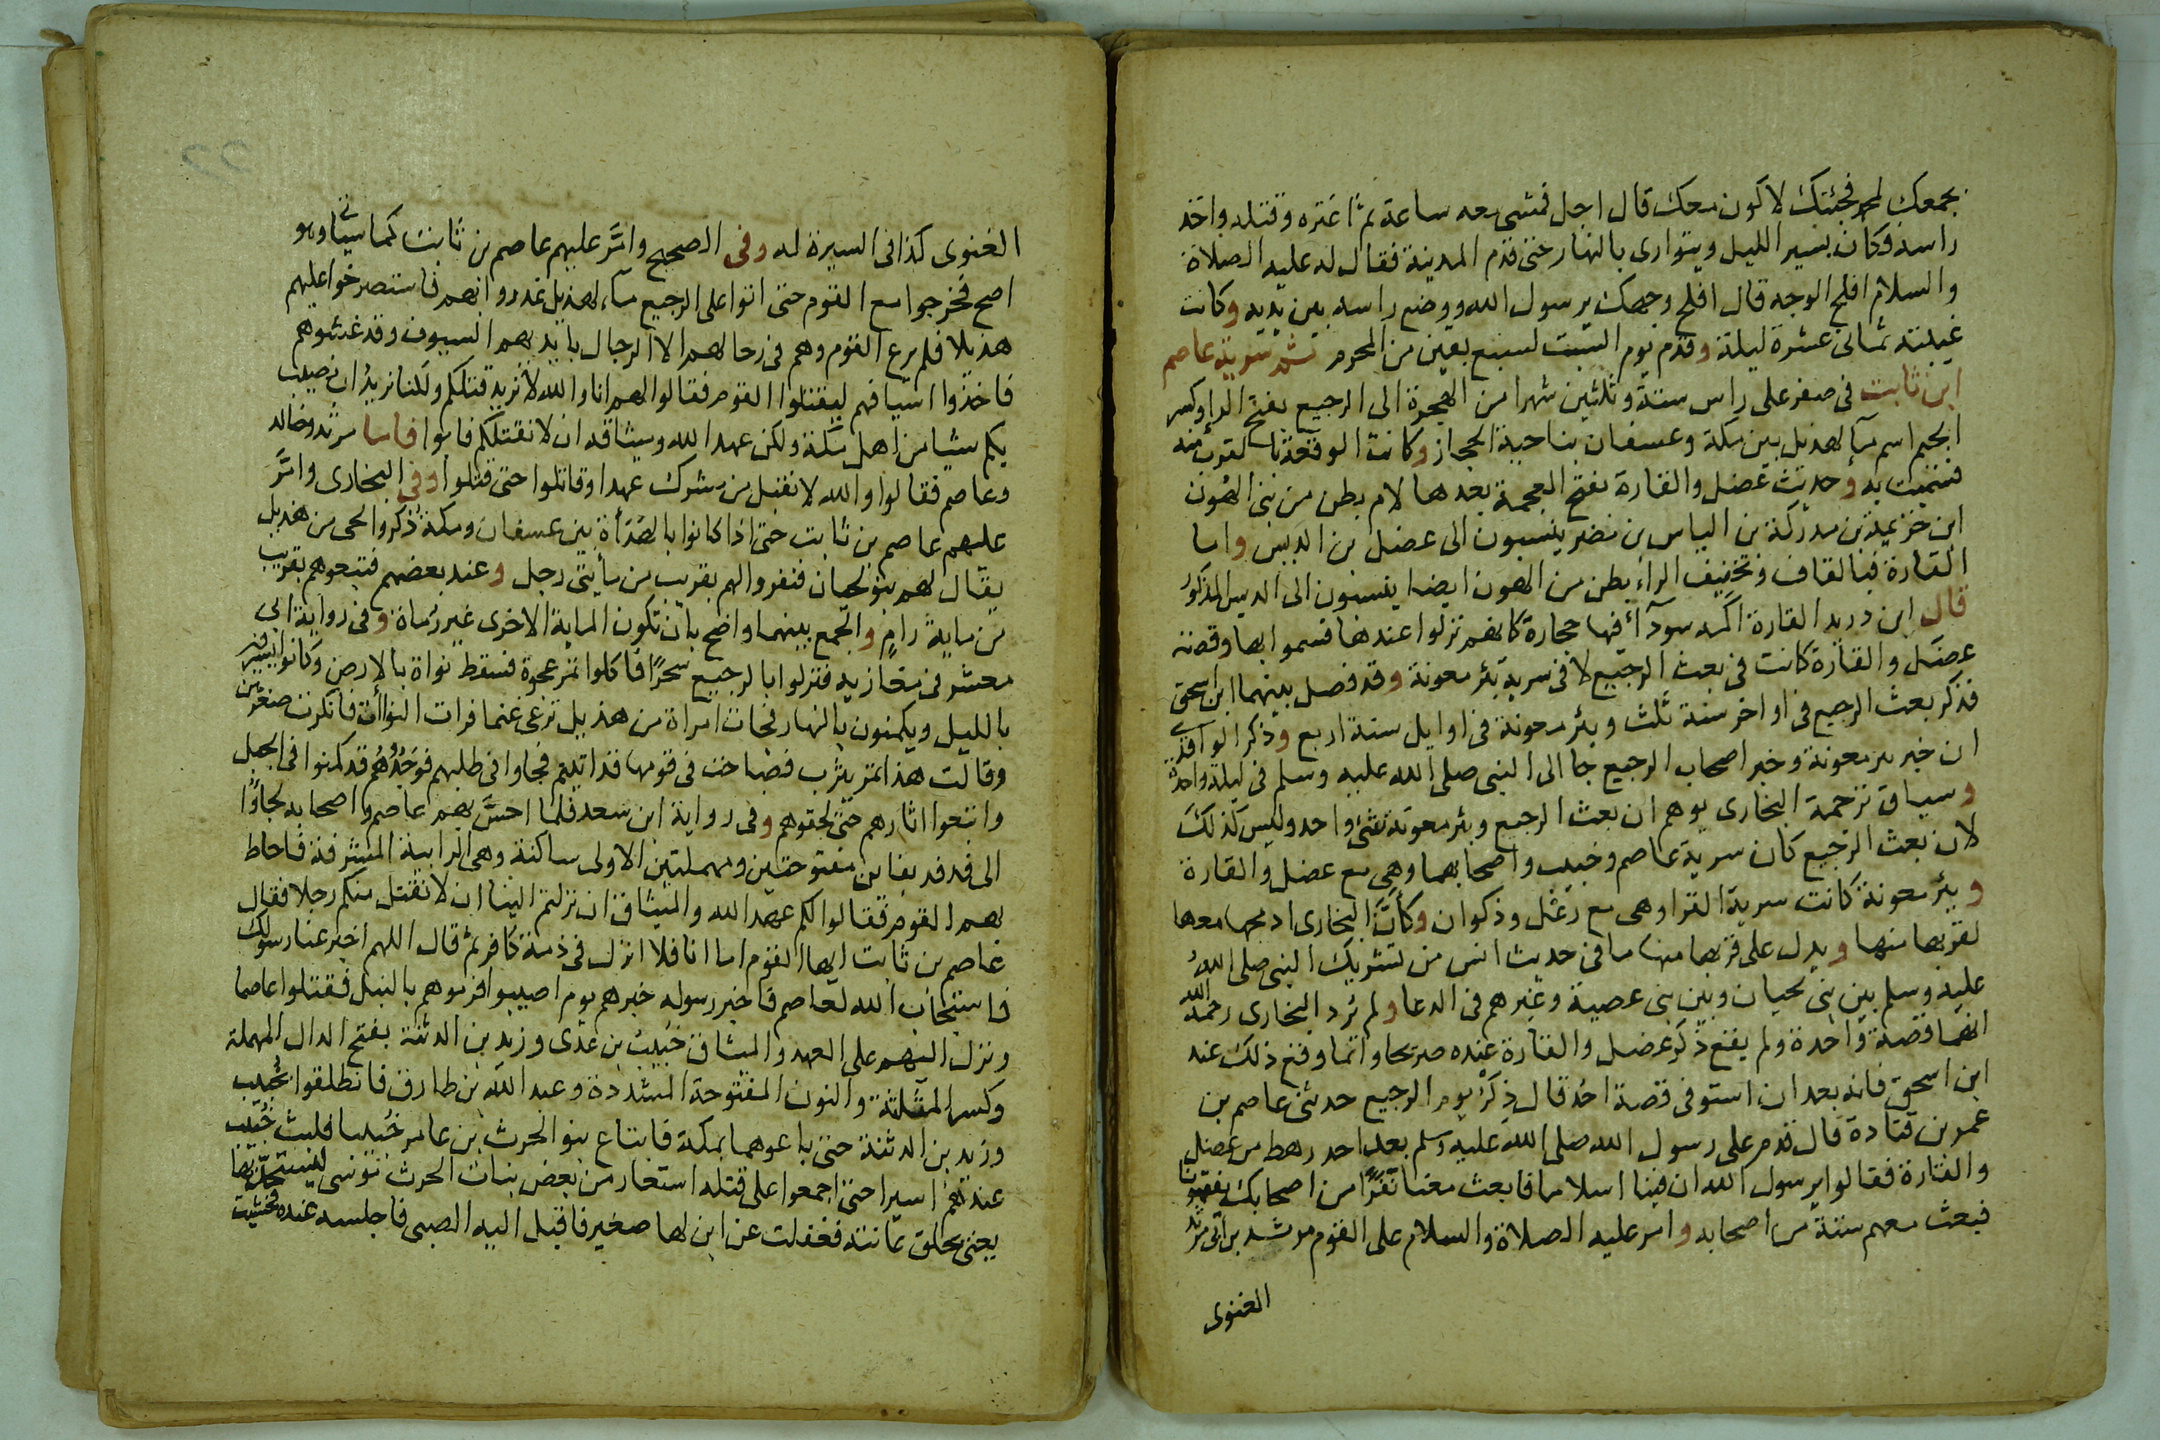 بجمعك لمحمد فجئتك لاكون معك قال اجل فمشى معه ساعة ثم اغتره وقتله واخذ
راسه وكان يسير الليل ويتوارى بالنهار حتى قدم المدينة فقال له عليه الصلاة
والسلام افلح الوجه قال افلح وجهك يرسول الله ووضع راسه بين يديه وكانت
غيبته ثمانى عشرة ليلة وقدم يوم السبت لسبع بقين من المحرم ثم سرية عاصم
ابن ثابت فى صفر على راس ستة وثلثين شهرا من الهجرة الى الرجيع بفتح الراء وكسر
الجيم اسم ماء لهذيل بين مكة وعسفان بناحية الحجاز وكانت الوقعة بالقرب منه
فسميت به وحديث عضل والقارة بفتح المعجمة بعدها لام بطن من بنى الهون
ابن خزيمة بن مدركة بن الياس بن مضر ينسبون الى عضل بن الديس واما
القارة فبالقاف وتخفيف الراء بطن من الهون ايضا ينسبون الى الديس المذكور
قال ابن دريد القارة اكمة سوداء فيها حجارة كانهم نزلوا عندها فسموا بها وقصة
عضل والقارة كانت فى بعث الرجيع لا فى سرية بئر معونة وقد فصل بينهما ابن اسحق
فذكر بعث الرجيع فى اواخر سنة ثلث وبئر معونة فى اوايل سنة اربع وذكر الواقدى
ان خبر بئر معونة وخبر اصحاب الرجيع جا الى النبى صلى الله عليه وسلم فى ليلة واحدة
وسياق ترجمة البخارى يوهم ان بعث الرجيع وبئر معونة شئ واحد وليس كذلك
لان بعث الرجيع كان سرية عاصم وخبيب واصحابهما وهى مع عضل والقارة
وبئر معونة كانت سرية القرا وهى مع رعل وذكوان وكأنّ البخارى ادمجها معها
لقربها منها ويدل على قربها منها ما فى حديث انس من تشريك النبى صلى الله
عليه وسلم بين بنى لحيان وبين بنى عصية وغيرهم فى الدعا ولم يُرد البخارى رحمه الله
انها قصة واحدة ولم يقع ذكر عضل والقارة عنده صريحا وانما وقع ذلك عند
ابن اسحق فانه بعد ان استوفى قصة احُد قال ذكرُ يوم الرجيع حدثنى عاصم بن
عمر بن قتادة قال قدم على رسول الله صلى الله عليه وسلم بعد احد رهط من عضل
والقارة فقالوا يرسول الله ان فينا اسلاما فابعث معنا نفرًا من اصحابك يفقهونا
فبعث معهم ستة من اصحابه وامر عليه الصلاة والسلام على القوم مرثد بن ابى مرثد
الغنوى
الغنوى كذا فى السيرة له وفى الصحيح وامَّر عليهم عاصم بن ثابت كما سياتى وهو
اصح فخرجوا مع القوم حتى اتوا على الرجيع ماء لهذيل غدروا بهم فاستصرخوا عليهم
هذيلا فلم يرع القوم وهم فى رحالهم الا الرجال بايديهم السيوف وقد غشوهم
فاخذوا اسيافهم ليقتلوا القوم فقالوا لهم انا والله لا نريد قتلكم ولكنا نريد ان نصيب
بكم شيا من اهل مكة ولكم عهد الله وميثاقه ان لا نقتلكم فابوا فاما مرثد وخالد
وعاصم فقالوا والله لا نقبل من مشرك عهدا وقاتلوا حتى قتلوا وفى البخارى وامَّر
عليهم عاصم بن ثابت حتى اذا كانوا بالهَدَأة بين عسفان ومكة ذُكروا لحى من هذيل
يقال لهم بنو لحيان فنفروا لهم بقريب من مأيتى رجل وعند بعضهم فتبعوهم بقريب
من ماية رامٍ والجمع بينهما واضح بان تكون الماية الاخرى غير رُماة وفى رواية ابى
معشر فى مغازيه فنزلوا بالرجيع سحرًا فاكلوا تمر عجوة فسقط نواة بالارض وكانوا يسيرون
بالليل ويكمنون بالنهار فجات امراة من هذيل ترعى غنما فرات النواات فانكرت صغرهن
وقالت هذا تمر يثرب فصاحت فى قومها قد اتيتم فجاوا فى طلبهم فوجدُوهُم قد كمنوا فى الجبل
واتبعوا اثارهم حتى لحقوهم وفى رواية ابن سعد فلما احسَّ بهم عاصم واصحابه لجاؤا
الى فدفد بفاين مفتوحتين ومهملتين الاولى ساكنة وهى الرابية المشرفة فاحاط
بهم القوم فقالوا لكم عهد الله والميثاق ان نزلتم الينا ان لا نقتل منكم رجلا فقال
عاصم بن ثابت ايها القوم اما انا فلا انزل فى ذمة كافر ثم قال اللهم اخبر عنا رسولك
فاستجاب الله لعاصم فاخبر رسوله خبرهم يوم اصيبوا فرموهم بالنبل فقتلوا عاصما
ونزل اليهم على العهد والميثاق خبيب بن عدى وزيد بن الدثنة بفتح الدال المهملة
وكسر المثلثة والنون المفتوحة المشددة وعبد الله بن طارق فانطلقوا بخبيب
وزيد بن الدثنة حتى باعوهما بمكة فابتاع بنو الحرث بن عامر خُبيبا فلبث خُبيب
عندهم اسيرا حتى اجمعوا على قتله استعار من بعض بنات الحرث موسى ليستحدّ بها
يعنى يحلق عانته فغفلت عن ابن لها صغير فاقبل اليه الصبى فاجلسه عنده فخشيت